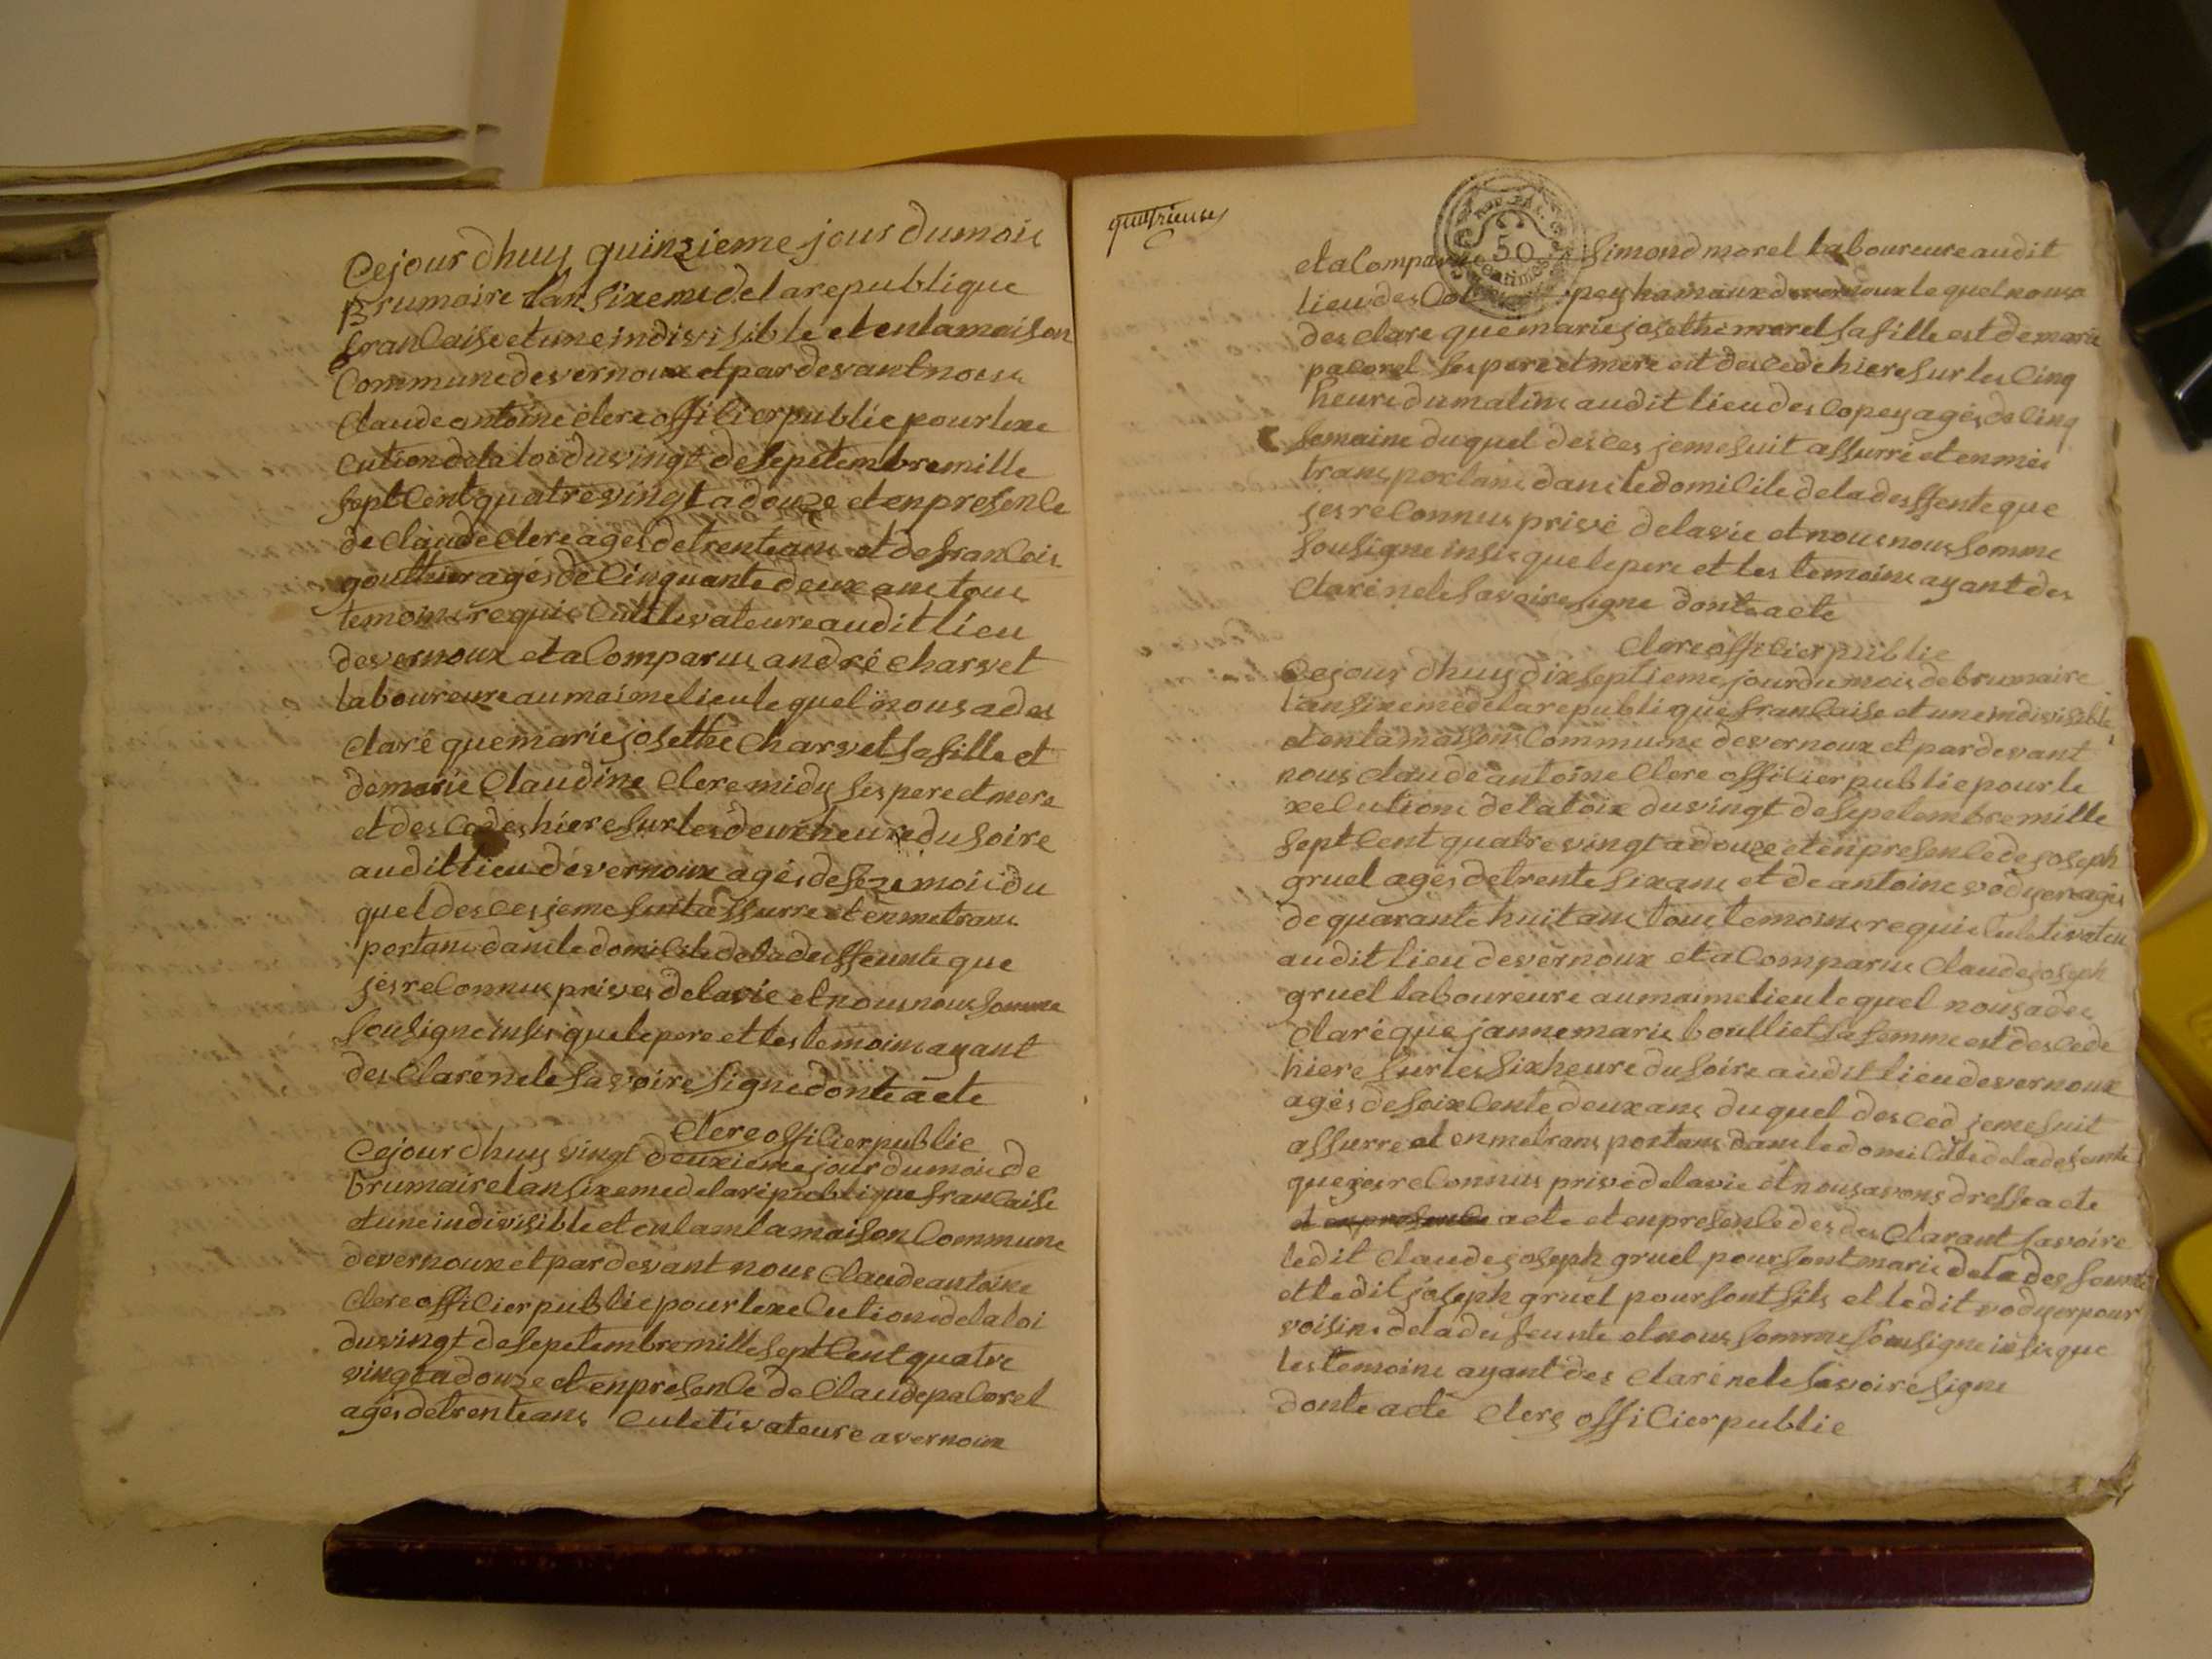 Cejourdhuy quinzieme jour dumois
Brumaire lan sixeme delarepublique
francaise etune indivisible et enlamaison
Commune devernoux etpardevant nous
Claude antoine clerc officier public pour lexe
cution dela loi du vingt de sepetembre mille
sept Cent quatre vingt a douze et en presence
de Claude Clerc agés de trente ans et de francois
goutturages de Cinquante deux ans tous
temoins requis Cultivateure audit lieu
devernoux et a Comparus andré charvet
laboureure au maime lieu le quel nous a des
claré que marie josethe Charvet sa fille et
de marie Claudine Clere midy ses pere et mere
et des cedes hiere sur les deux heure du soire
audit lieu devernoux agés de seze mois du
quel desces je me suit assurre et en me trans
portans dans le domicile de la deffeunte que
jes reConnus prives de la vie et nous nous somme
sousigne insis que le pere et les temoins ayant
des claré ne le savoire signe dont acte
Clerc officier public
Cejourdhuy vingt deuxieme jour du mois de
brumaire lan sixeme de la republique francaise
et une indivisible et en lam la maison Commune
devernoux et par devant nous Claude antoine
Clerc officier public pour lexecutions de la loi
du vingt de sepetembre mille sept Cent quatre
vingt a douze et en presence de Claude paCorel
agés de trente ans Culetivateure a vernoux
50 Centimes
et a Comparus Simond morel laboureure audit
lieu des hamaux devernoux le quel nous a
des clare que marie josethe morel sa fille est de marie
pacorel ses pere et mere est descede hiere sur les Cinq
heure du matins audit lieu des Copey agés de Cinq
semaine du quel desces je me suit assurré et en mes
transportans dans le domicile de la deffente que
jes reConnus privé de la vie et nous nous somme
sousigne insis que le pere et les temoins ayant des
claré ne le savoire signe dont acte
Clerc officier public
Cejourdhuy dix septieme jour du mois de brumaire
lan sixeme de la republique francaise et une indivisible
et en la maisons Commune devernoux et par devant
nous claude antoine Clerc officier public pour le
xecutions de la loix du vingt de sepetembre mille
sept Cent quatre vingt a douze et en presence de joseph
gruel agés de trente six ans et de antoine vodyer agés
de quarante huit ans tous temoins requis Culetivateu
audit lieu devernoux et a Comparus Claude joseph
gruel laboureure au maime lieu le quel nous a des
claré que janne marie boulliet sa femme est descede
hiere sur les six heure du soire audit lieu devernoux
agés de soixCente deux ans du quel desced je me suit
assurre et en me trans portans dans le domicile de la defeunte
que jes reConnus privé de la vie et nous avons dresse acte
et en presence acte et en presence des des clarant savoire
ledit Claude joseph gruel pour sont maris de la desfeunte
et ledit joseph gruel pour sont fils et ledit vodyer pour
voisins de la desfeunte et nous somme sousigne insis que
les temoins ayant des claré ne le savoire signe
dont acte Clerc officier public